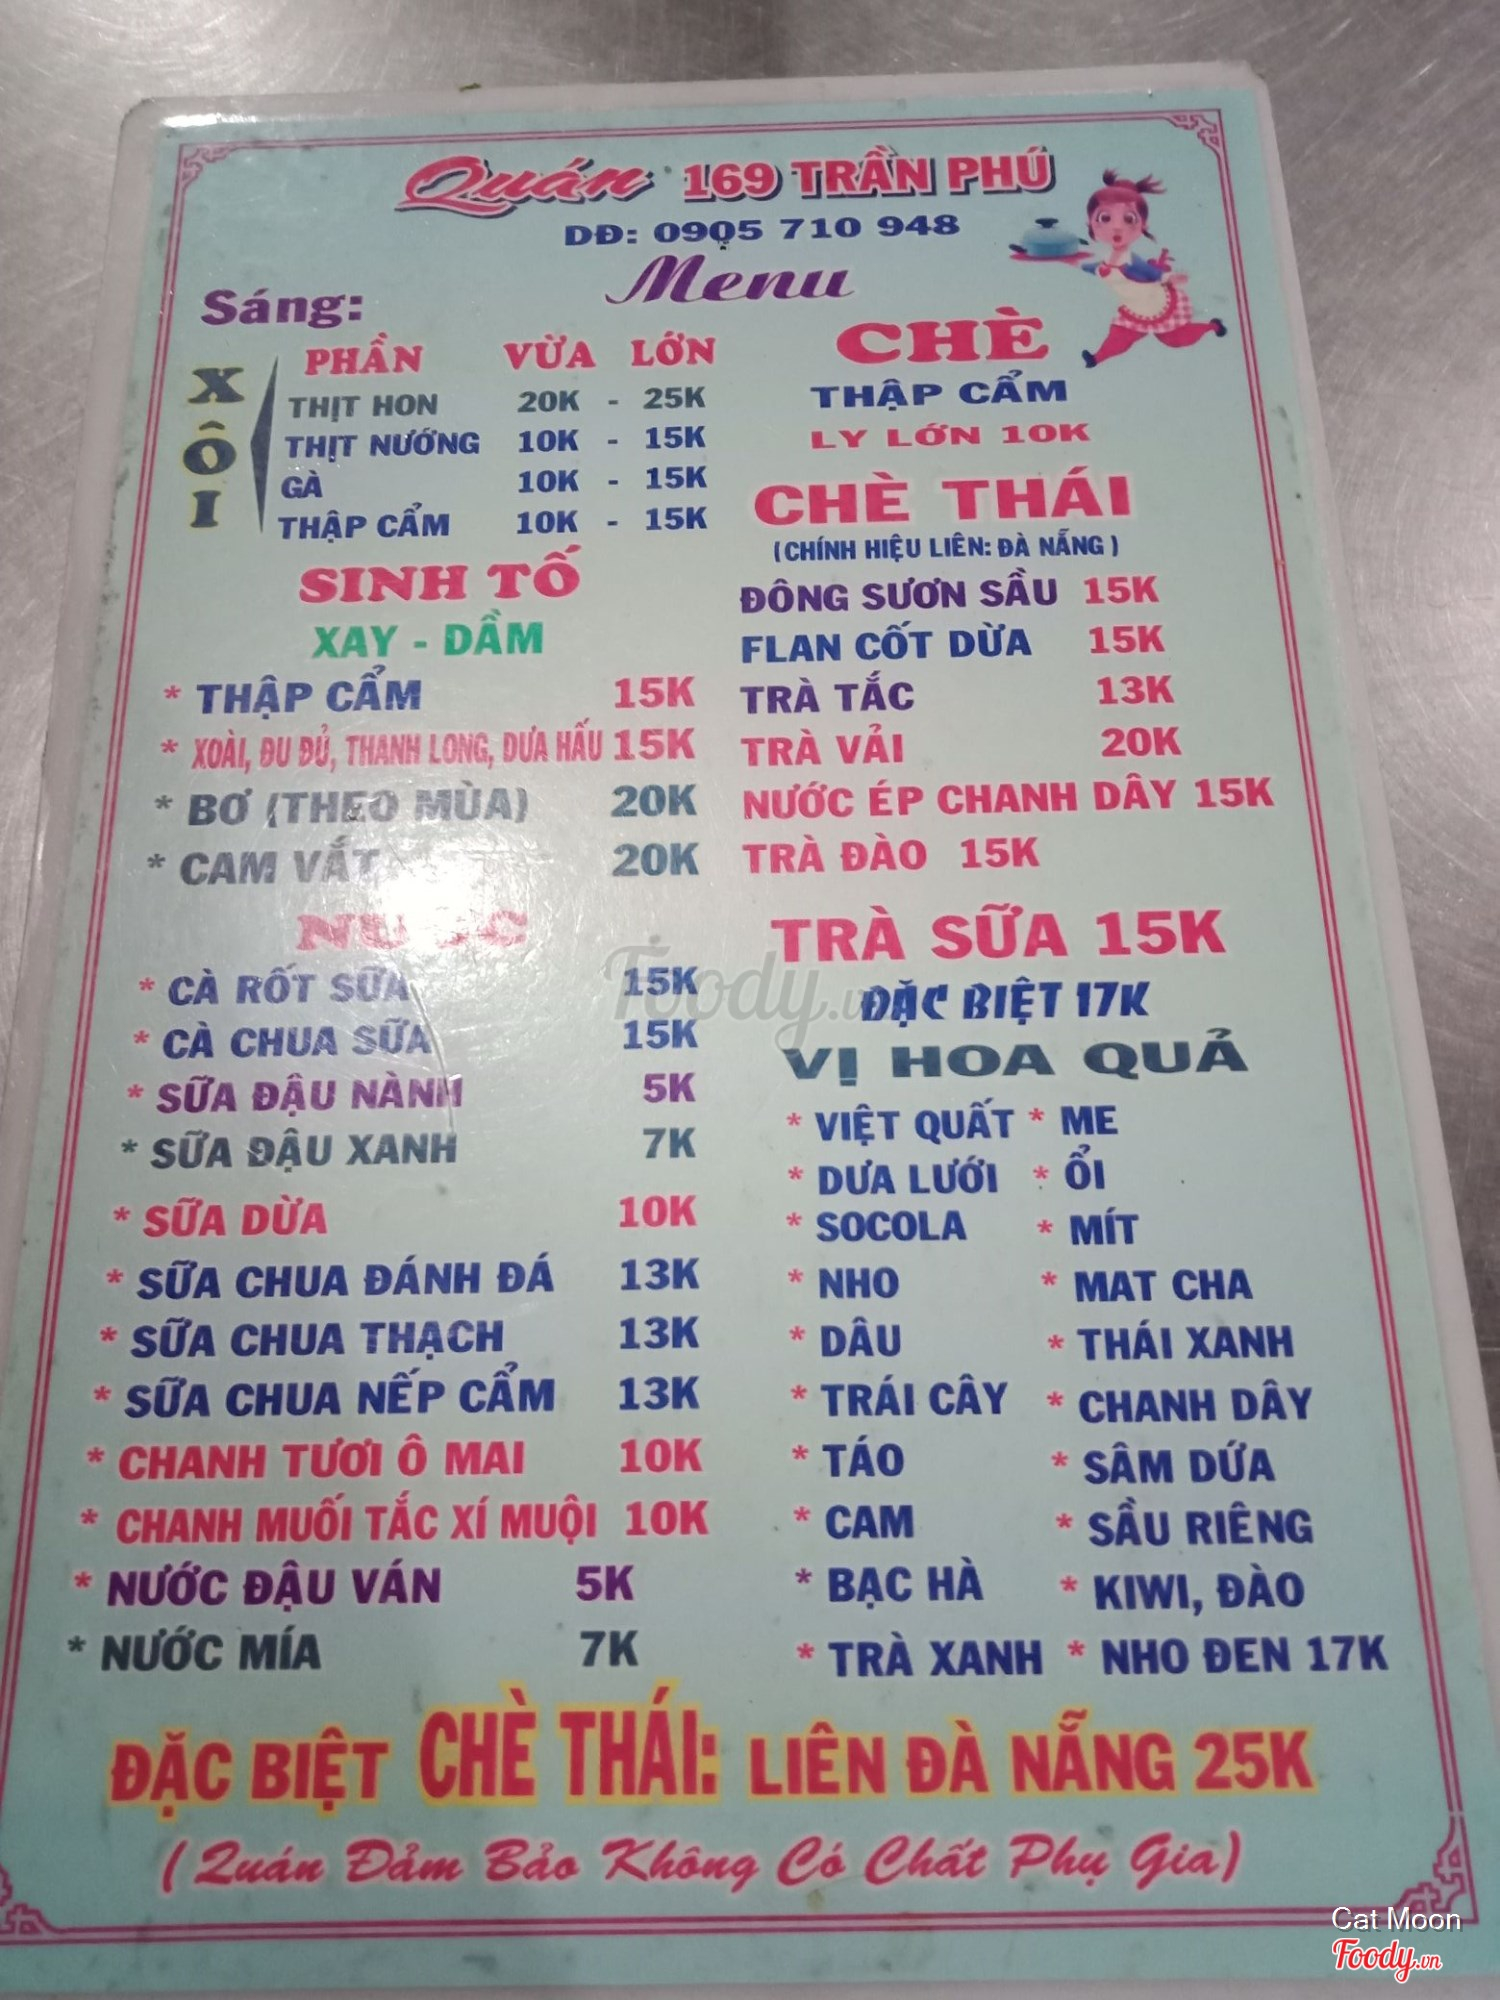 Quán 169 TRẦN PHÚ
DĐ: 0905 710 948
Menu
Sáng:
XÔI
PHẦN VỪA LỚN
THỊT HON 20K - 25K
THỊT NƯỚNG 10K - 15K
GÀ 10K - 15K
THẬP CẨM 10K - 15K
SINH TỐ
XAY - DẦM
* THẬP CẨM 15K
* XOÀI, ĐU ĐỦ, THANH LONG, DƯA HẤU 15K
* BƠ (THEO MÙA) 20K
* CAM VẮT 20K
NƯỚC
* CÀ RỐT SỮA 15K
* CÀ CHUA SỮA 15K
* SỮA ĐẬU NÀNH 5K
* SỮA ĐẬU XANH 7K
* SỮA DỪA 10K
* SỮA CHUA ĐÁNH ĐÁ 13K
* SỮA CHUA THẠCH 13K
* SỮA CHUA NẾP CẨM 13K
* CHANH TƯƠI Ô MAI 10K
* CHANH MUỐI TẮC XÍ MUỘI 10K
* NƯỚC ĐẬU VÁN 5K
* NƯỚC MÍA 7K
CHÈ
THẬP CẨM
LY LỚN 10K
CHÈ THÁI
(CHÍNH HIỆU LIÊN: ĐÀ NẴNG)
ĐÔNG SƯƠN SẦU 15K
FLAN CỐT DỪA 15K
TRÀ TẮC 13K
TRÀ VẢI 20K
NƯỚC ÉP CHANH DÂY 15K
TRÀ ĐÀO 15K
TRÀ SỮA 15K
ĐẶC BIỆT 17K
VỊ HOA QUẢ
* VIỆT QUẤT * ME
* DƯA LƯỚI * ỔI
* SOCOLA * MÍT
* NHO * MAT CHA
* DÂU * THÁI XANH
* TRÁI CÂY * CHANH DÂY
* TÁO * SÂM DỨA
* CAM * SẦU RIÊNG
* BẠC HÀ * KIWI, ĐÀO
* TRÀ XANH * NHO ĐEN 17K
ĐẶC BIỆT CHÈ THÁI: LIÊN ĐÀ NẴNG 25K
(Quán Đảm Bảo Không Có Chất Phụ Gia)
Foody.vn
Cat Moon
Foody.vn